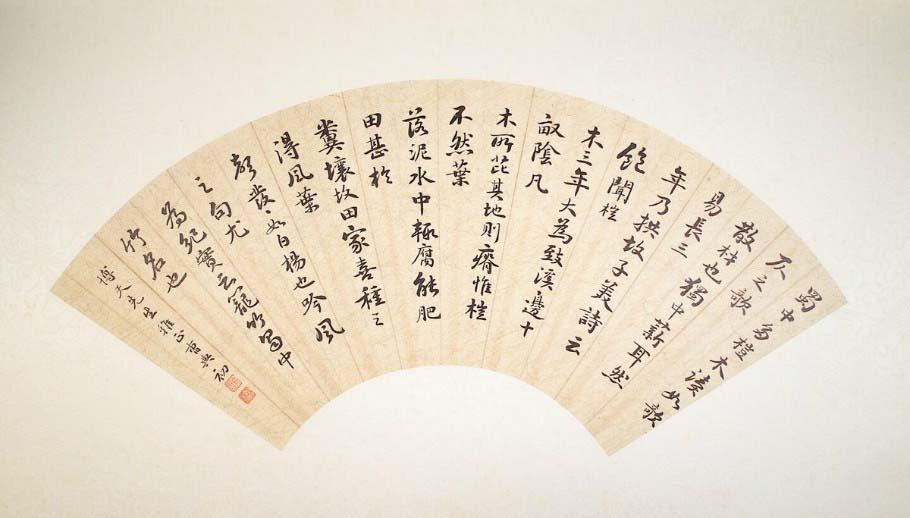 蜀中多榿木讀如欹
仄之欹
散材也獨中薪耳然
易長三
年乃拱故子美詩云
飽聞榿
木三年大為致溪邊十
畝陰凡
木所芘其地則瘠惟榿
不然葉
落泥水中輒腐能肥
田甚於
糞壤故田家喜種之
得風葉
聲發〻如白楊也吟風
之句尤
為紀實云籠竹蜀中
竹名也
博天先生雅正曹典初